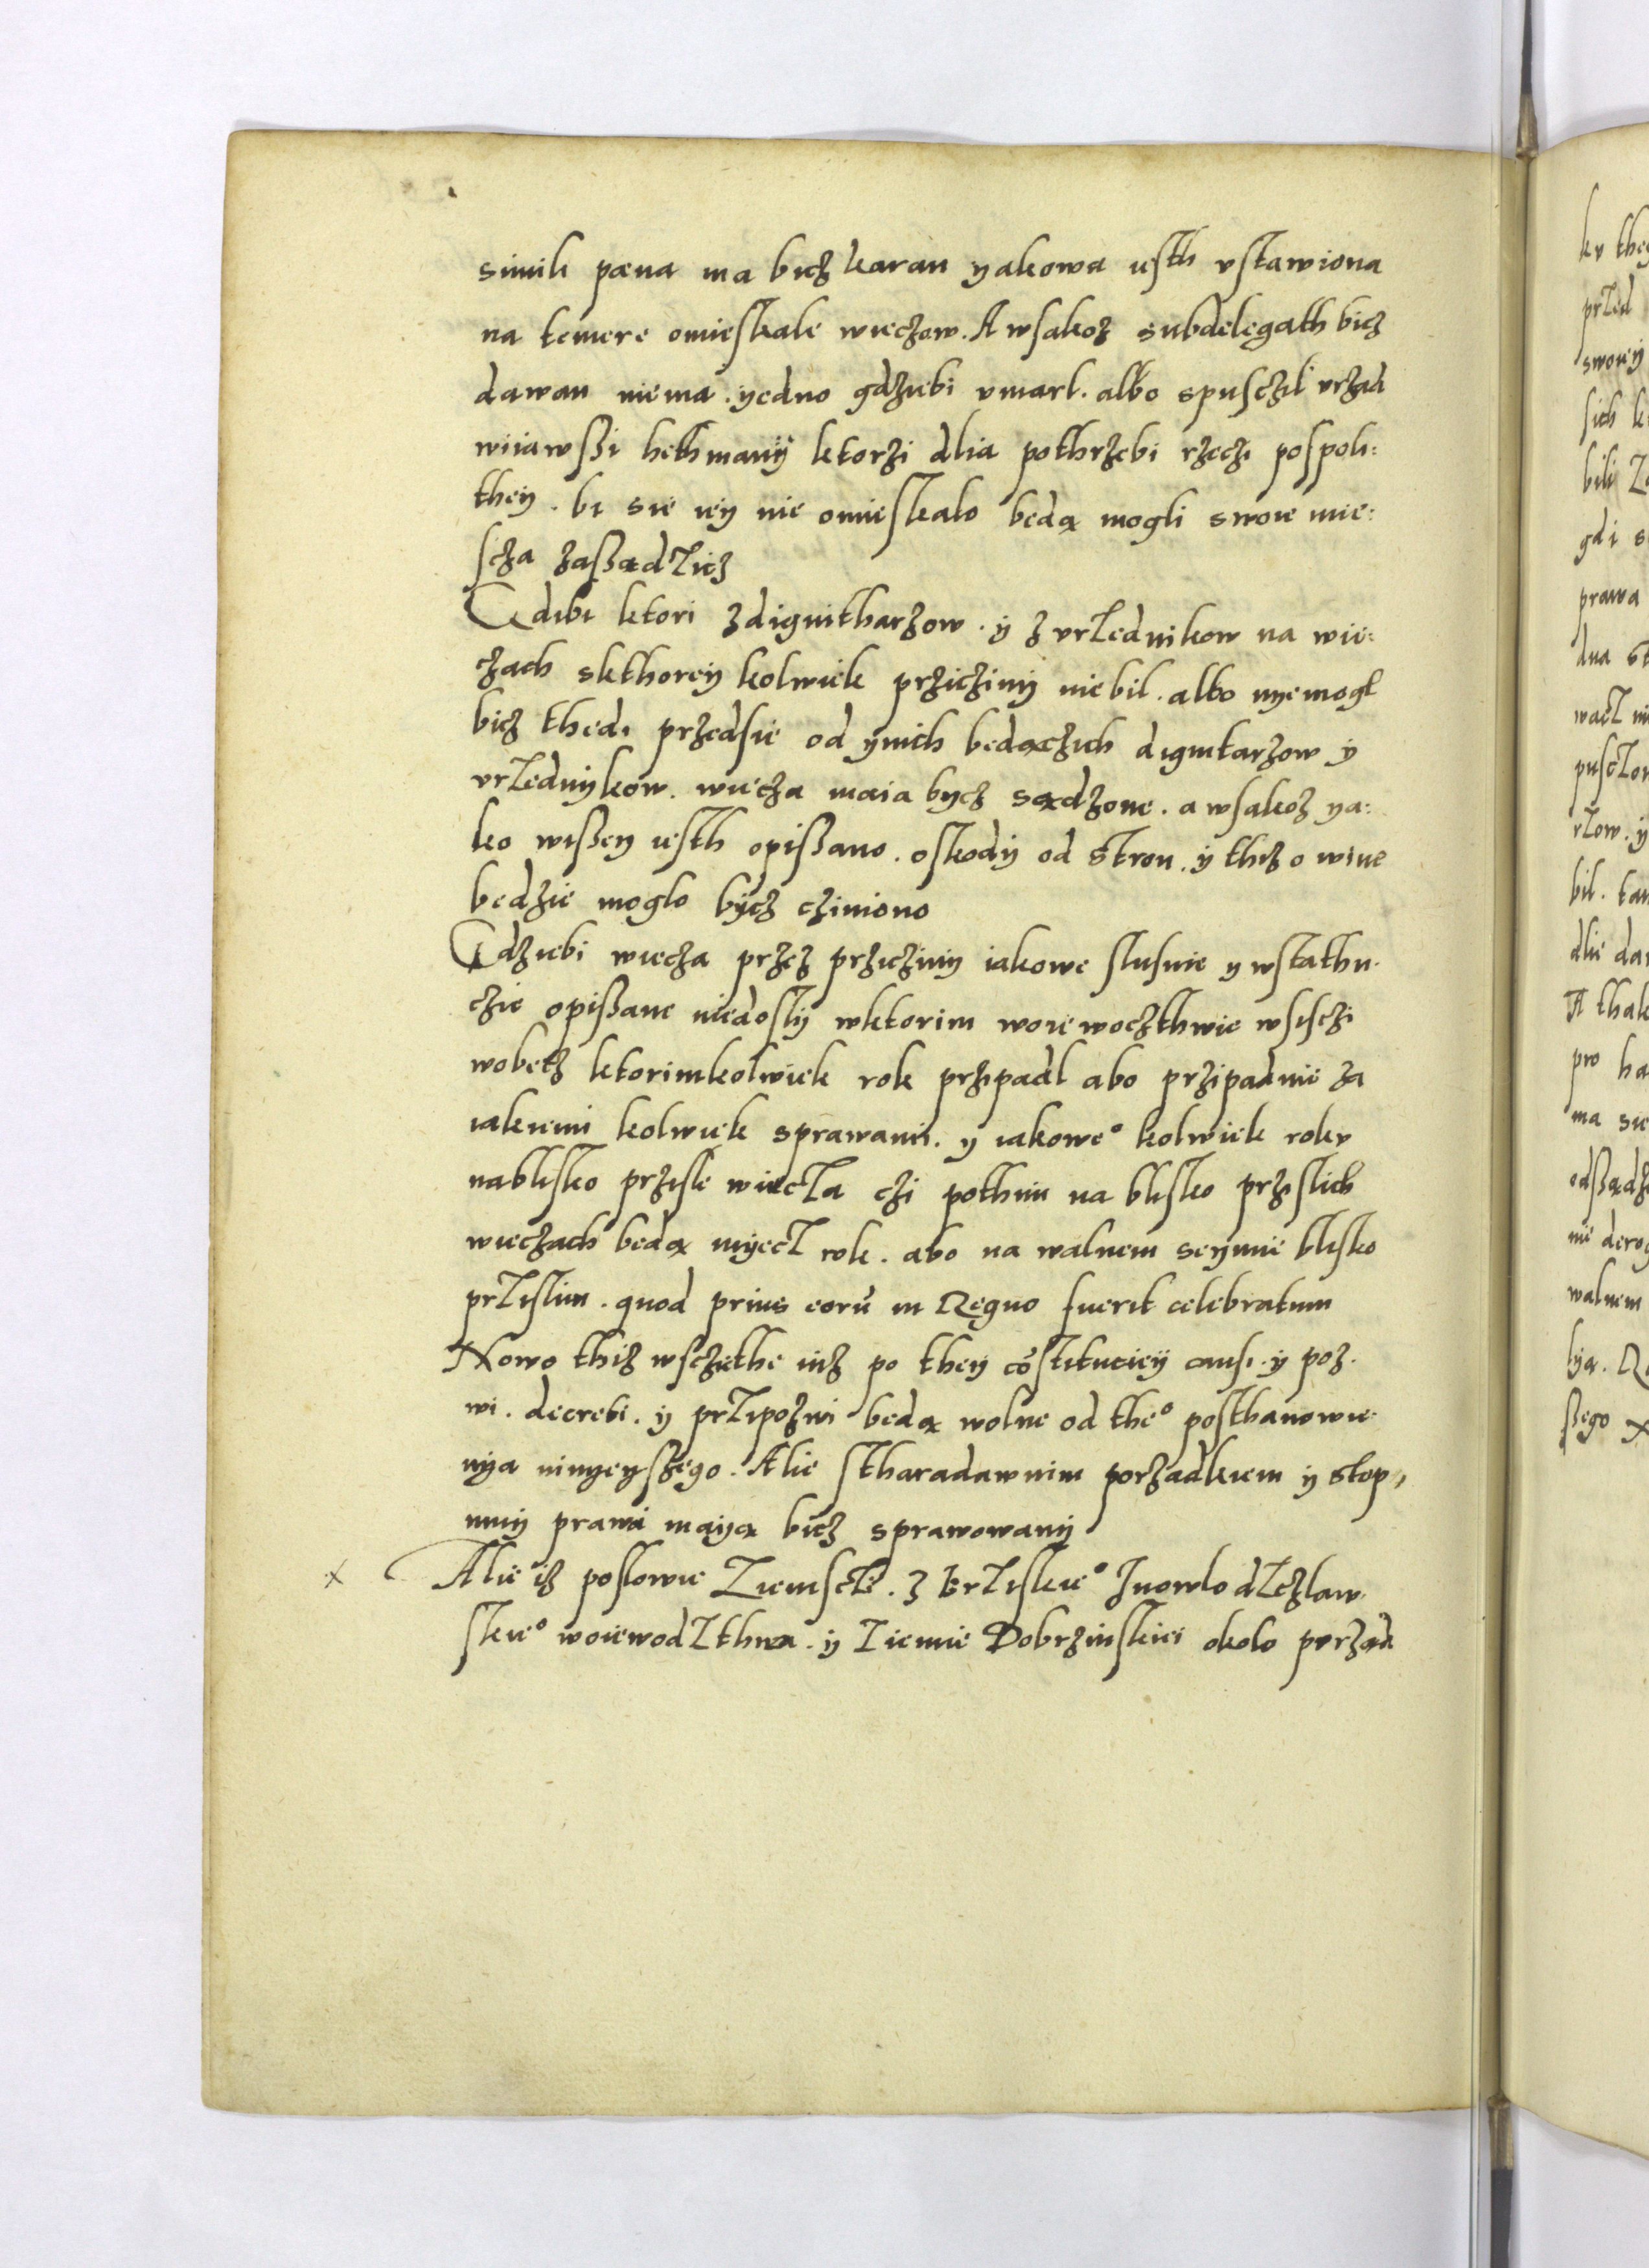 simili pœna ma bicz karan yakowa iesth vstawiona
na temere omieskale wieczow. A wsakoz subdelegath bicz
dawan niema. yedno gdziebi vmarl. albo spusczil vrzad
wiiawssi hethmany ktorzi dlia pothrzebi rzeczi pospoli:
they. bi sie iey nie omieskalo beda mogli swoie mie:
scza zassadzicz
Gdibi ktori z dignitharzow. y z vrzednikow na wie:
czach skthorey kolwiek przicziny niebil. albo nyemogl
bicz thedi przedsie od ynich bedaczich dignitarzow y
vrzednykow. wiecza maia bycz sadzone. a wsakoz ya:
ko wissey iesth opissano. oskody od stron. y thiz o wine
bedzie moglo bycz cziniono
Gdziebi wiecza przez prziczini iakowe slusnie y wstathu
czie opissane niedosly wktorim woiewoczthwie wsisczi
wobecz ktorimkolwiek rok przipadl abo przipadnie za
iakiemi kolwiek sprawami. y iakoweº kolwiek roku
nablisko przisle wiecza czi pothim na blisko przislich
wieczach beda myecz rok. abo na walnem seymie blisko
przislim. quod prius eorũ in Regno fuerit celebratum
Nowo thiz wsczethe iuz po they cõstituciey causi. y poz.
wi. decreti. y przipozwi beda wolne od theº posthanowie
nya ninyeyszego. Alie stharadawnim porzadkiem y stop,
nmy prawa maya bicz sprawowany
x Alie iz poslowie Ziemscze. z Brziskieº Inowlodzczlaw
skieº woiewodzthwa. y Ziemie Dobrzinskiei okolo porzad